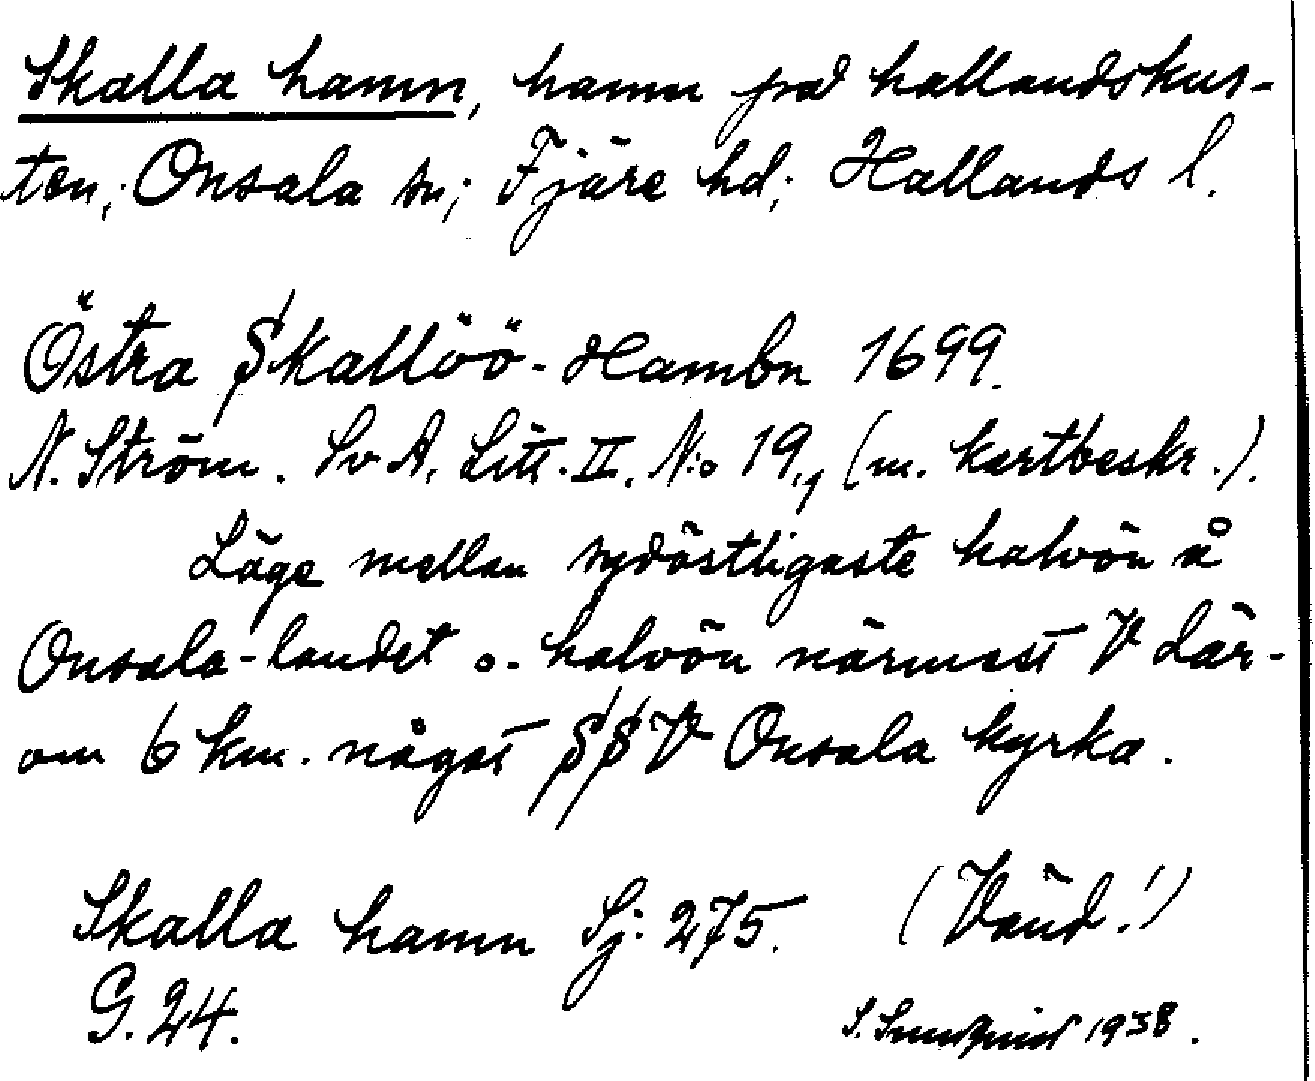 Skalla hamn, hamn på hallandskus-
ten; Onsala sn; Fjäre hd; Hallands l.
Östra Skallöö-Hambn 1699.
N. Ström. Sv A. Litt. II. N:o 19., (m. kartbeskr.).
Läge mellan sydöstligaste halvön å
Onsala-landet o. halvön närmast V där-
om 6 km. något SSV Onsala kyrka.
Skalla hamn Sj: 275. (Vänd!)
G. 24.
S. 1938.